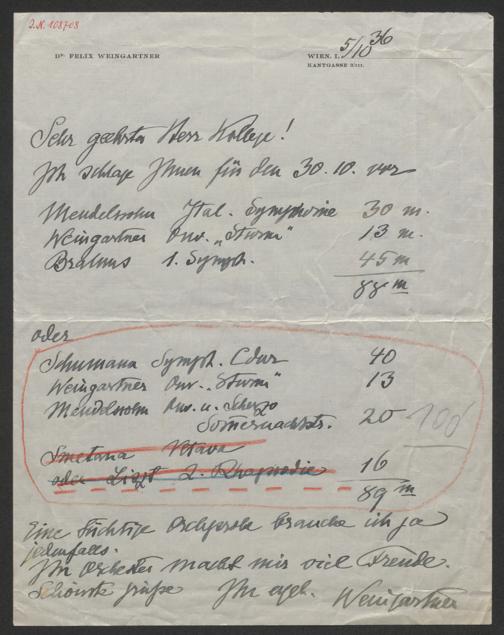 J.N. 108708
Dr. FELIX WEINGARTNER
WIEN, I., 5/10 36
KANTGASSE 3/III.
Sehr geehrter Herr Kollege!
Ich schlage Ihnen für den 30.10. vor
Mendelssohn Ital. Symphonie 30 m.
Weingartner Ouv. „Sturm" 13 m.
Brahms 1. Symph. 45 m
88 m
oder
Schumann Symph. Cdur 40
Weingartner Ouv. „Sturm" 13
Mendelssohn Ouv. u. Scherzo
Somernachtstr. 20 100
Smetana Vltava
oder Liszt 2. Rhapsodie 16
89 m
Eine tüchtige Orchesterprobe brauche ich ja
jedenfalls.
Ihr Orchester macht mir viel Freude.
Schönste Grüße Ihr ergeb. Weingartner